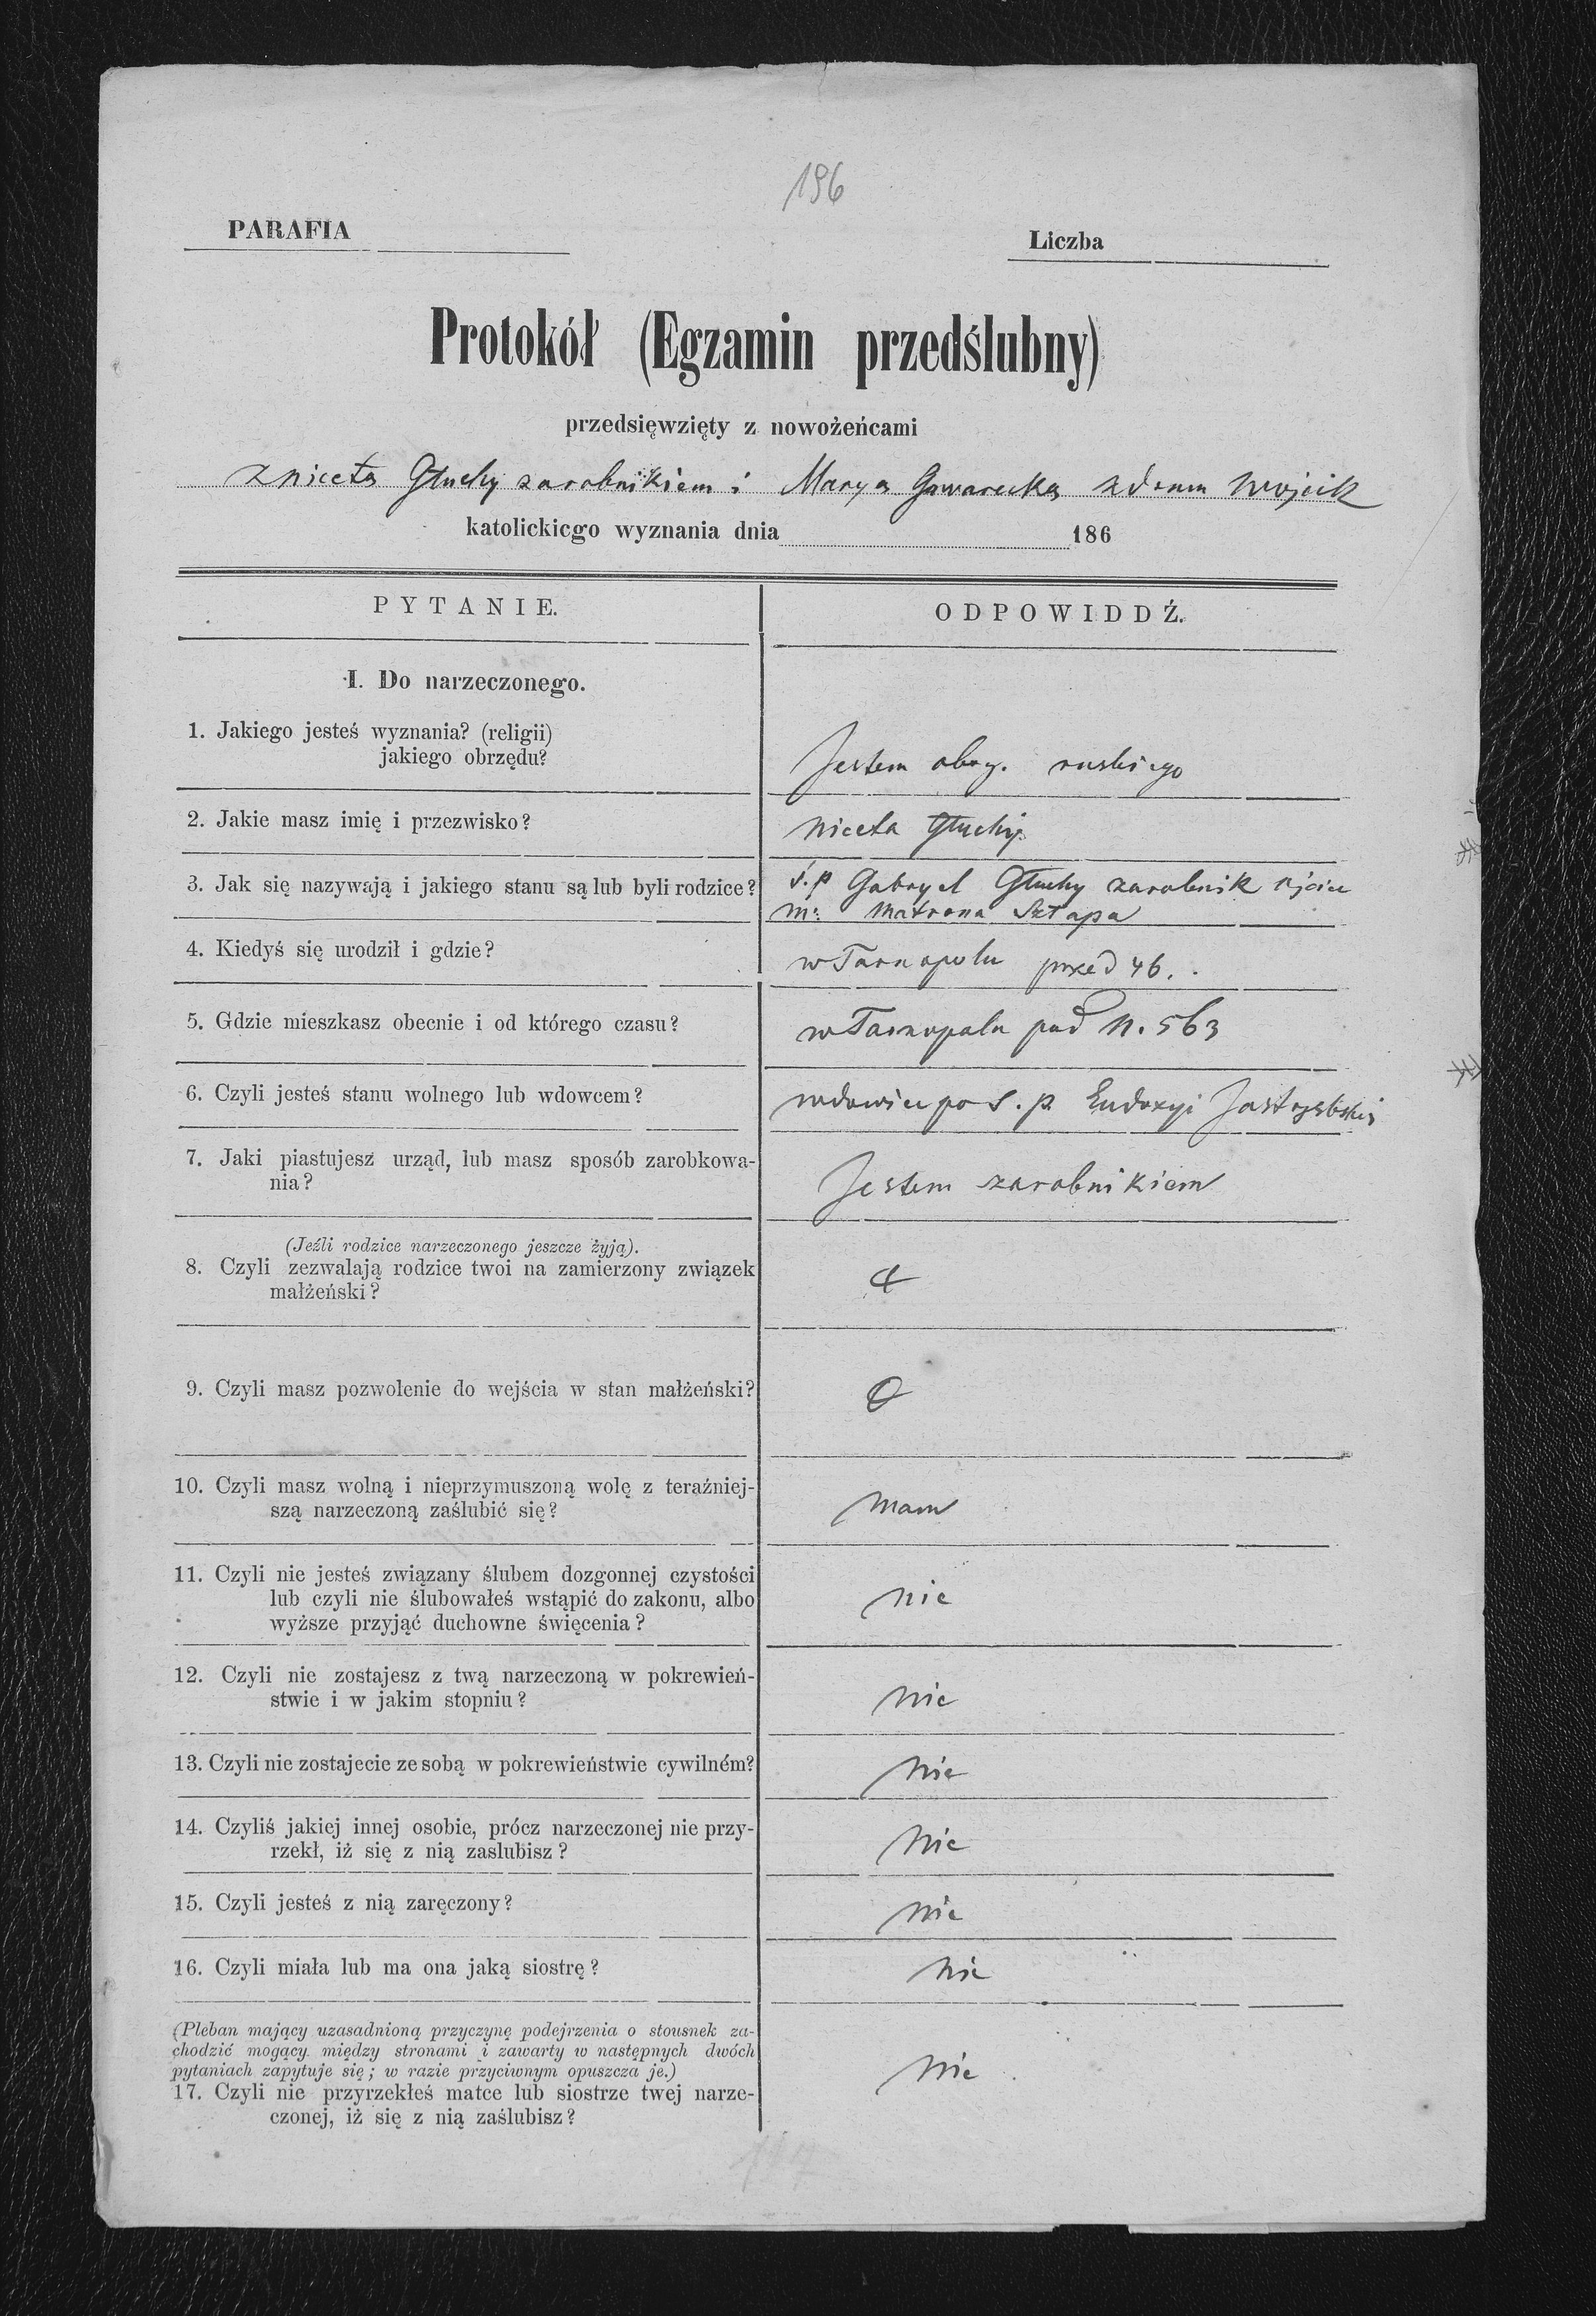 196
PARAFIA
Liczba
Protokół (Egzamin przedślubny)
przedsięwzięty z nowożeńcami
z Niceta Głuchy zarobnikiem i Marya Gawarecka zdomu Wojcik
katolickicgo wyznania dnia 186
PYTANIE.
ODPOWIDDŹ.
I. Do narzeczonego.
1. Jakiego jesteś wyznania? (religii)
jakiego obrzędu?
Jestem obrz. ruskiego
2. Jakie masz imię i przezwisko?
Niceta Głuchy
3. Jak się nazywają i jakiego stanu są lub byli rodzice?
ś.p Gabryel Głuchy zarobnik ojciec
m: Matrona Sztapa
4. Kiedyś się urodził i gdzie?
w Tarnopolu przed 46.
5. Gdzie mieszkasz obecnie i od którego czasu?
w Tarnopolu pod N. 563
6. Czyli jesteś stanu wolnego lub wdowcem?
wdowiec po ś.p. Eudoxyi Jastrzębskiej
7. Jaki piastujesz urząd, lub masz sposób zarobkowa-
nia?
Jestem zarobnikiem
(Jeźli rodzice narzeczonego jeszcze żyją).
8. Czyli zezwalają rodzice twoi na zamierzony związek
małżeński?
9. Czyli masz pozwolenie do wejścia w stan małżeński?
10. Czyli masz wolną i nieprzymuszoną wolę z teraźniej-
szą narzeczoną zaślubić się?
Mam
11. Czyli nie jesteś związany ślubem dozgonnej czystości
lub czyli nie ślubowałeś wstąpić do zakonu, albo
wyższe przyjąć duchowne święcenia?
nie
12. Czyli nie zostajesz z twą narzeczoną w pokrewień-
stwie i w jakim stopniu?
nie
13. Czyli nie zostajecie ze sobą w pokrewieństwie cywilném?
nie
14. Czyliś jakiej innej osobie, prócz narzeczonej nie przy-
rzekł, iż się z nią zaslubisz?
nie
15. Czyli jesteś z nią zaręczony?
nie
16. Czyli miała lub ma ona jaką siostrę?
nie
(Pleban mający uzasadnioną przyczynę podejrzenia o stousnek za-
chodzić mogący między stronami i zawarty w następnych dwóch
pytaniach zapytuje się; w razie przyciwnym opuszcza je.)
17. Czyli nie przyrzekłeś matce lub siostrze twej narze-
czonej, iż się z nią zaślubisz?
nie